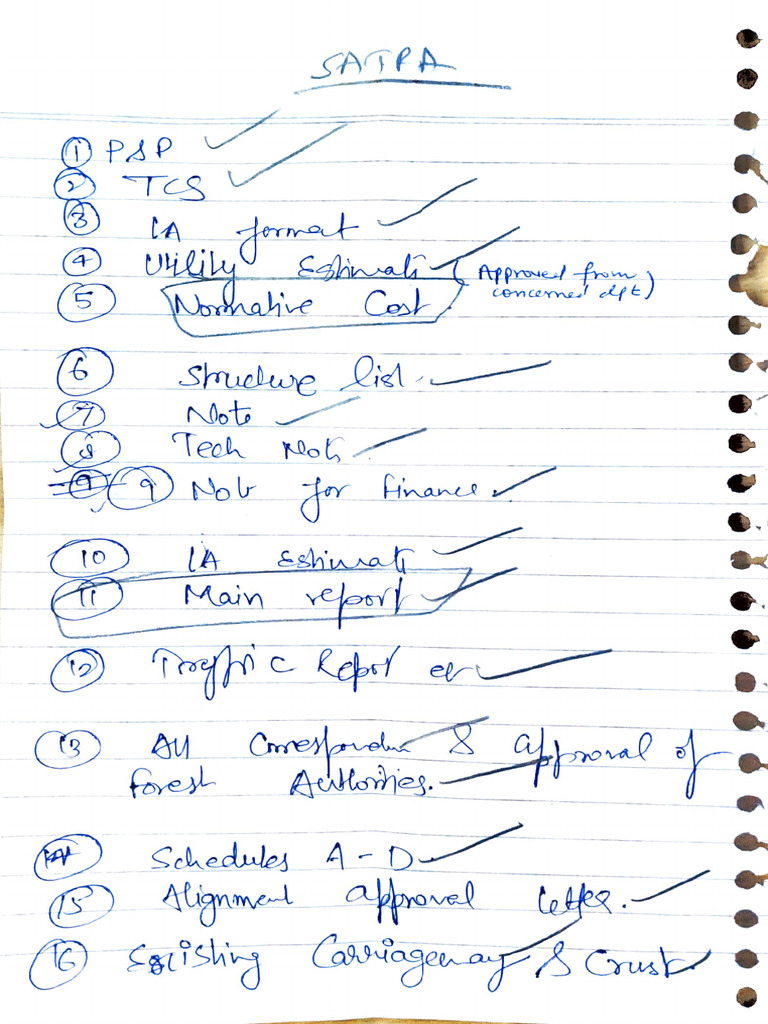 SATPA
① PSP ✓
② TCS ✓
③ LA format ✓
④ Utility Estimate ✓ (Approved from
concerned dpt)
⑤ Normative Cost
⑥ Structure list ✓
⑦ Note ✓
⑧ Tech Note ✓
⑨ Note for Finance ✓
⑩ LA Estimate ✓
⑪ Main report ✓
⑫ Traffic Report ✓
⑬ All Correspondence & approval of
forest Authorities. ✓
⑭ Schedules A-D ✓
⑮ Alignment approval letter. ✓
⑯ Existing Carriageway & Crust ✓